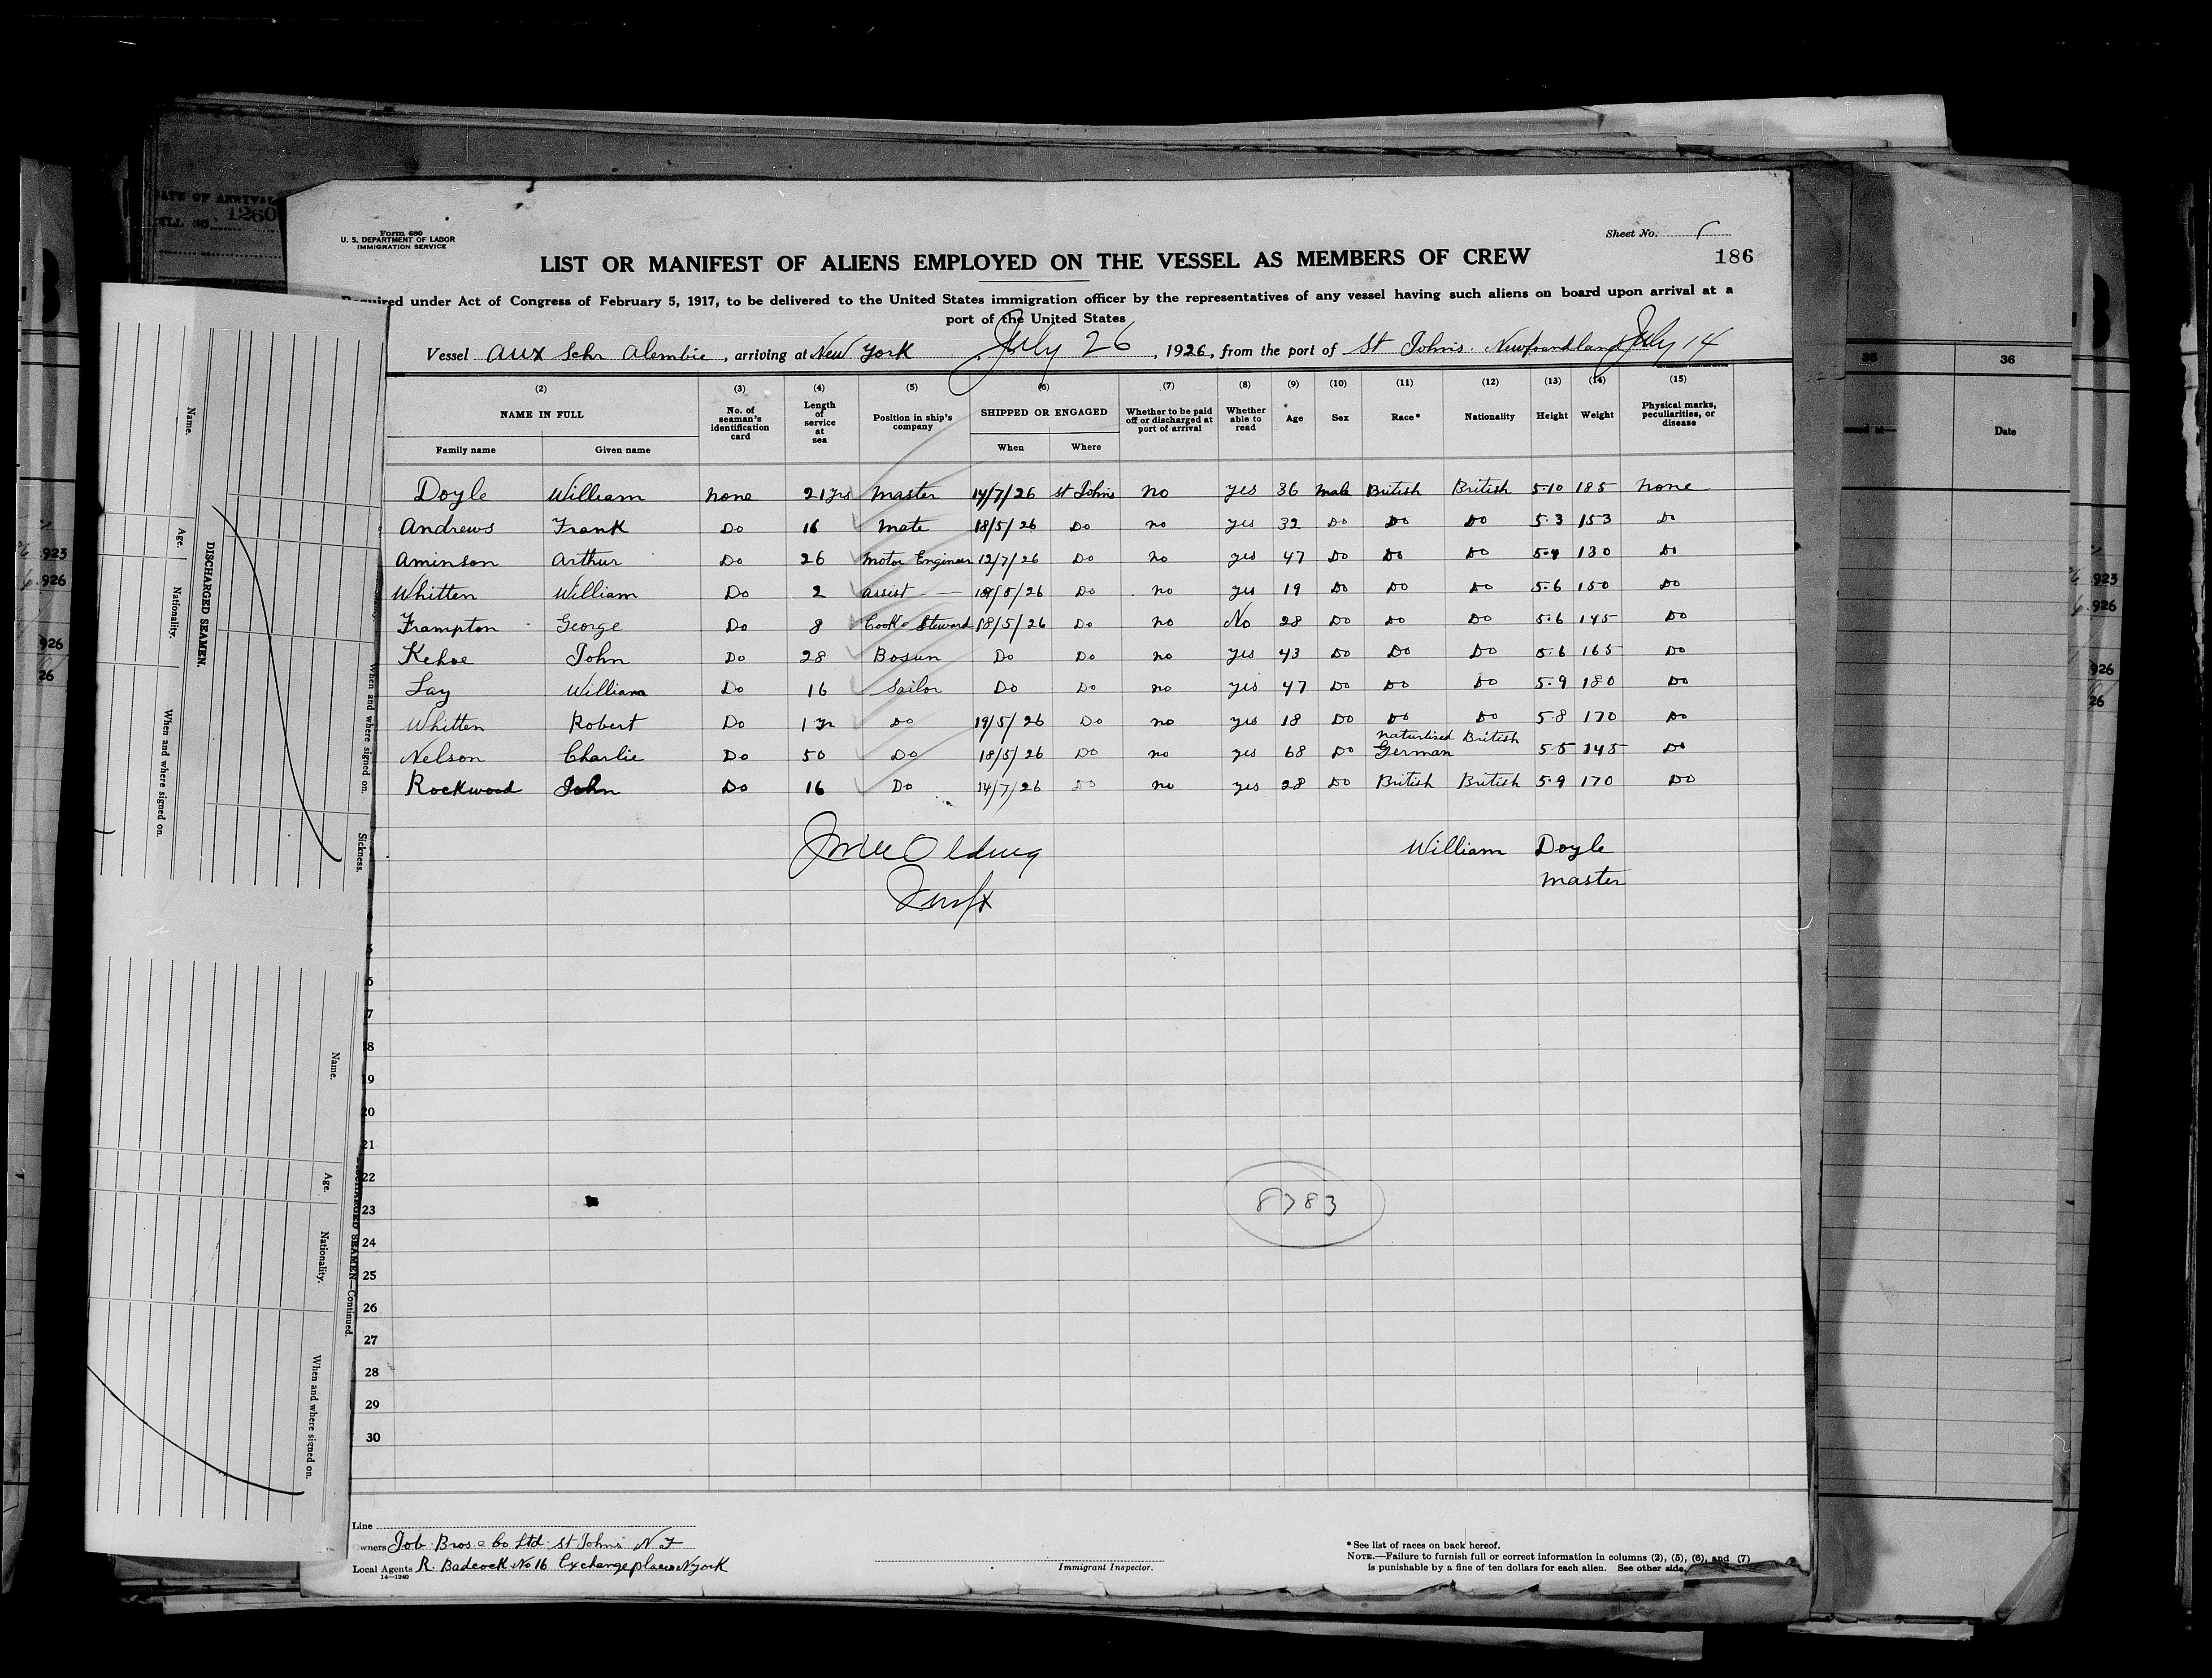 DATE OF ARRIVAL
1260
Form 680
U. S. DEPARTMENT OF LABOR
IMMIGRATION SERVICE
Sheet No. 1
186
LIST OR MANIFEST OF ALIENS EMPLOYED ON THE VESSEL AS MEMBERS OF CREW
Required under Act of Congress of February 5, 1917, to be delivered to the United States immigration officer by the representatives of any vessel having such aliens on board upon arrival at a
port of the United States
Vessel Aux Schr Alembic, arriving at New York July 26, 1926, from the port of St Johns. Newfoundland July 14
(2) (3) (4) (5) (6) (7) (8) (9) (10) (11) (12) (13) (14) (15)
NAME IN FULL No. of seaman's identification card Length of service at sea Position in ship's company SHIPPED OR ENGAGED Whether to be paid off or discharged at port of arrival Whether able to read Age Sex Race* Nationality Height Weight Physical marks, peculiarities, or disease
Family name Given name When Where
Doyle William none 21yrs Master 14/7/26 St Johns no yes 36 Male British British 5·10 185 none
Andrews Frank Do 16 Mate 18/5/26 Do no yes 32 Do Do Do 5·3 153 Do
Aminson Arthur Do 26 Motor Engineer 12/7/26 Do no yes 47 Do Do Do 5·4 130 Do
Whitten William Do 2 assist — /26 Do no yes 19 Do Do Do 5·6 150 Do
Frampton George Do 8 Cook & Steward 18/5/26 Do no No 28 Do Do Do 5·6 145 Do
Kehoe John Do 28 Bosun Do Do no yes 43 Do Do Do 5·6 165 Do
Fay William Do 16 Sailor Do Do no yes 47 Do Do Do 5·9 180 Do
Whitten Robert Do 1 yr Do 19/5/26 Do no yes 18 Do Do Do 5·8 170 Do
Nelson Charlie Do 50 Do 18/5/26 Do no yes 68 Do naturlised German British 5·5 145 Do
Rockwood John Do 16 Do 14/7/26 Do no yes 28 Do British British 5·9 170 Do
William Doyle
Master
5
6
7
8
19
20
21
22
23
24
25
26
27
28
29
30
8783
Line
Owners Job Bros & Co Ltd St Johns N F
Local Agents R. Badcock No 16 Exchange place N york
14—1240
Immigrant Inspector.
* See list of races on back hereof.
NOTE.—Failure to furnish full or correct information in columns (2), (5), (6), and (7)
is punishable by a fine of ten dollars for each alien. See other side.
DISCHARGED SEAMEN.
Name.
Age.
Nationality.
When and where signed on.
When and where signed on.
Sickness.
DISCHARGED SEAMEN—Continued.
Name.
Age.
Nationality.
When and where signed on.
35 36
Date
923
926
926
26
923
926
926
26